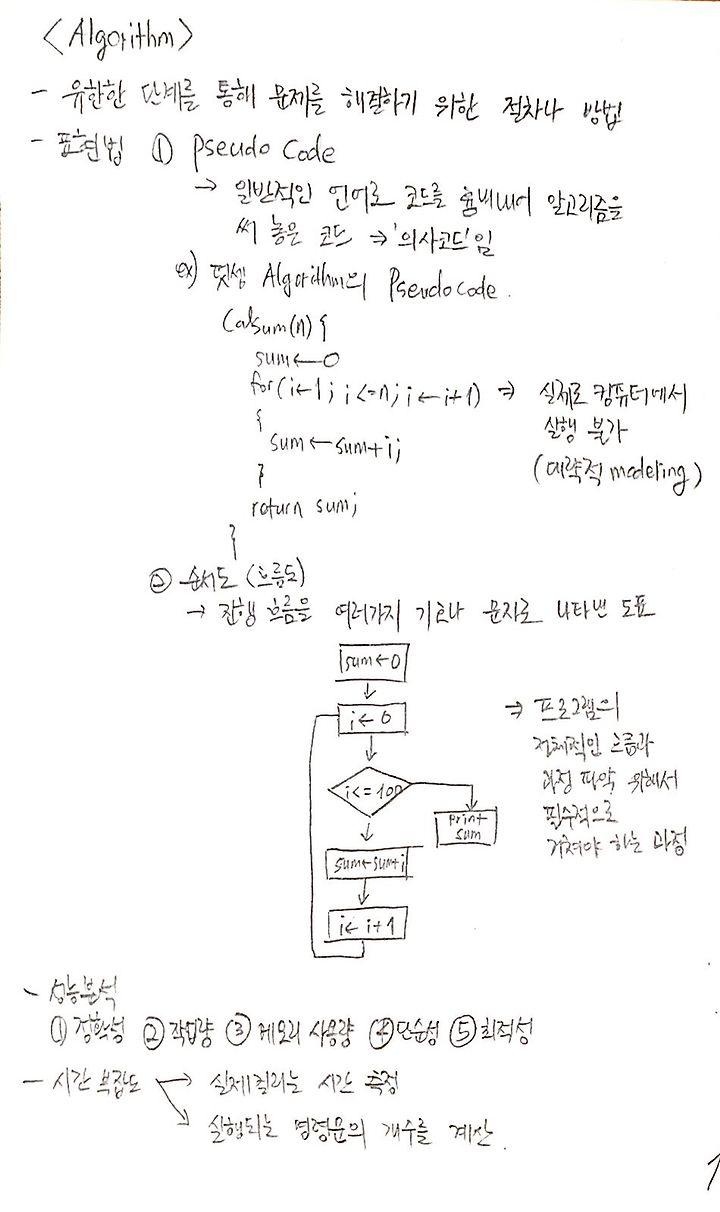 <Algorithm>
- 유한한 단계를 통해 문제를 해결하기 위한 절차나 방법
- 표현법 ① Pseudo Code
→ 일반적인 언어로 코드를 흉내내어 알고리즘을
써 놓은 코드 → '의사코드'임
ex) 덧셈 Algorithm의 Pseudocode.
CalSum(n) {
sum←0
for(i←1; i<=n; i←i+1) ⇒ 실제로 컴퓨터에서
{ 실행 불가
sum←sum+i; (대략적 modeling)
}
return sum;
}
② 순서도 (흐름도)
→ 진행 흐름을 여러가지 기호나 문자로 나타낸 도표
sum←0
i←0
i<=100
print
sum
sum←sum+i
i←i+1
⇒ 프로그램의
전체적인 흐름과
과정 파악 위해서
필수적으로
거쳐야 하는 과정
- 성능분석
① 정확성 ② 작업량 ③ 메모리 사용량 ④ 단순성 ⑤ 최적성
- 시간 복잡도 → 실제걸리는 시간 측정
↘ 실행되는 명령문의 개수를 계산.
1